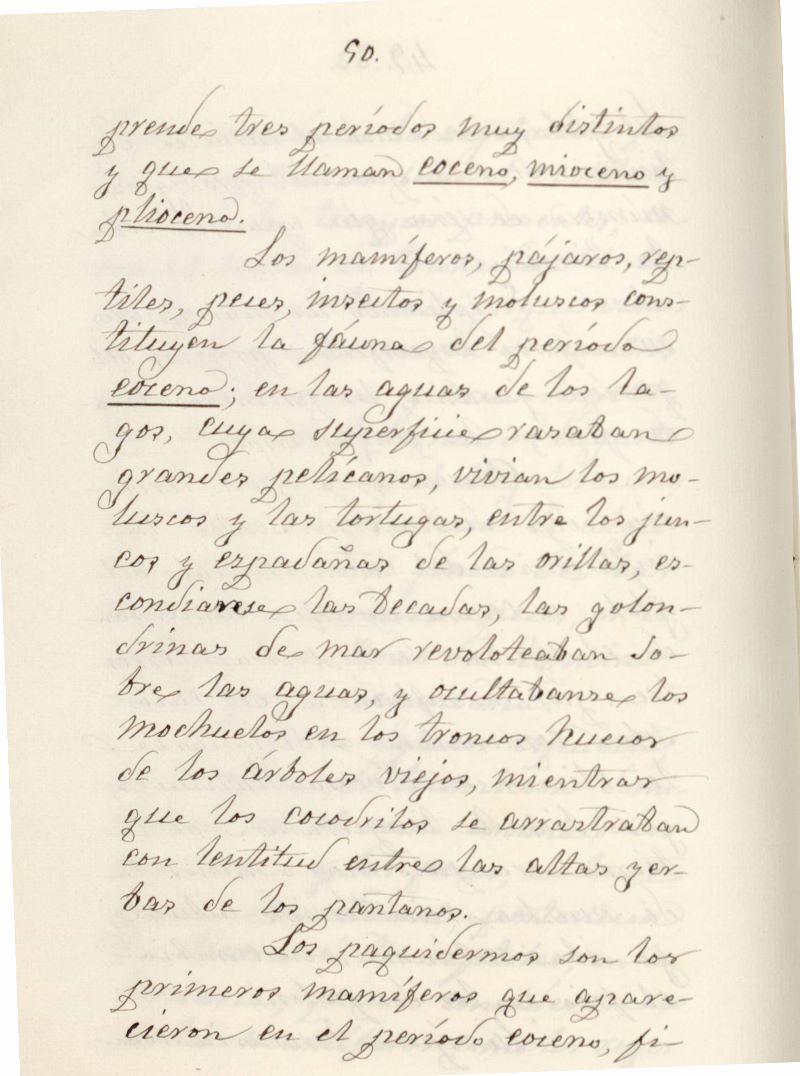 50.
prende tres períodos muy distintos
y que se llaman eoceno, mioceno y
plioceno.
Los mamíferos, pájaros, rep-
tiles, peces, insectos y moluscos cons-
tituyen la fáuna del período
eoceno; en las aguas de los la-
gos, cuya superficie rasaban
grandes pelícanos, vivian los mo-
luscos y las tortugas, entre los jun-
cos y espadañas de las orillas, es-
condianse las becadas, las golon-
drinas de mar revoloteaban so-
bre las aguas, y ocultabanse los
mochuelos en los troncos huecos
de los árboles viejos, mientras
que los cocodrilos se arrastraban
con lentitud entre las altas yer-
bas de los pantanos.
Los paquidermos son los
primeros mamíferos que apare-
cieron en el período eoceno, fi-